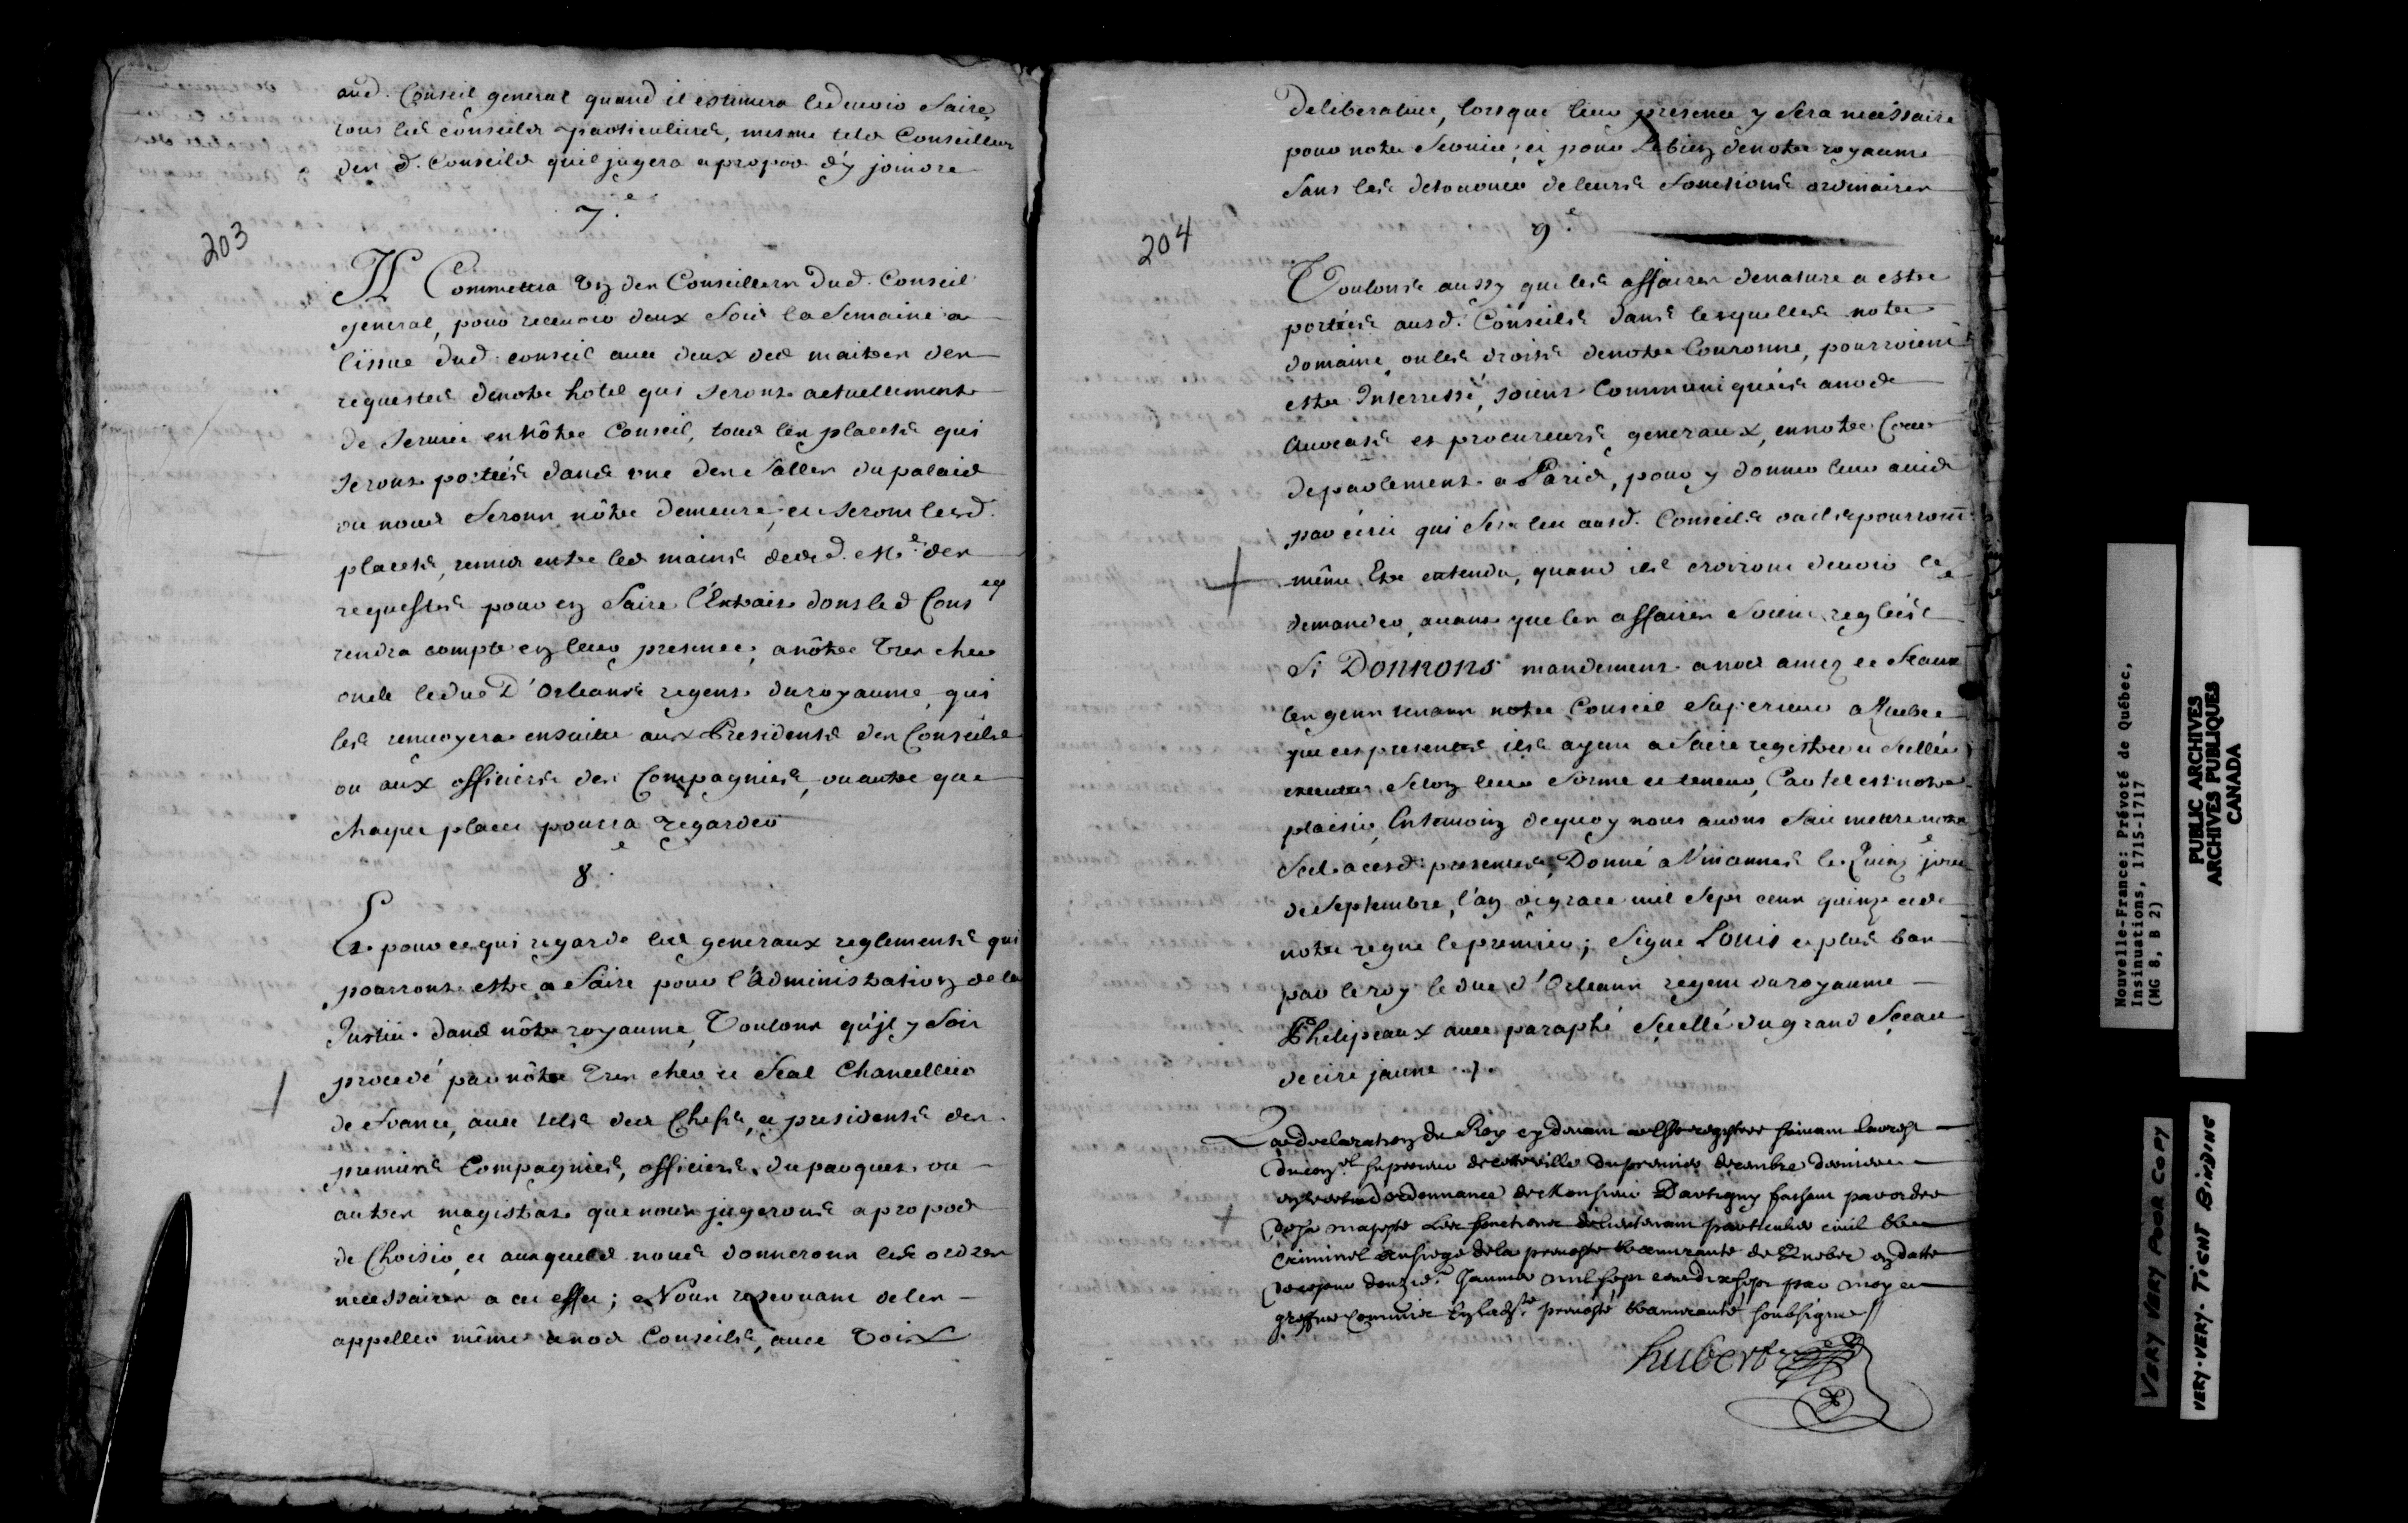 aud. Conseil general quand il estimera le devoir faire,
tous les conseils particuliers, mesme tels Conseillers
des d. Conseils qu'il jugera apropos d'y joindre
7.e
203
Il Commettra un des Conseillers dud. Conseil
general, pour recevoir deux fois la semaine a
l'issue dud. conseil avec deux des maitres des
requestes de notre hotel qui seront actuellement
de service en nôtre Conseil, tous les placets qui
seront portés dans une des salles du palais
ou nous serons nôtre demeure, et seront lesd.
placets, remis entre les mains desd. Me. des
requestes pour en faire l'Extrait dont led Cons er
rendra compte en leur presence, a nôtre tres cher
oncle le duc D'Orleans regent du royaume, qui
les renvoyera ensuitte aux Presidents des Conseils
ou aux officiers des Compagnies, ou autre que
chaque placet pourra regarder
8.e
Et pour ce qui regarde les generaux reglements qui
pourront estre a faire pour l'administration de la
Justice dans nôtre royaume, Voulons qu'jl y soit
procedé par nôtre tres cher et feal Chancellier
de france, avec tels des Chefs, et presidents des
premieres Compagnies, officiers du parquet ou
autres magistrats que nous jugerons apropos
de Choisir, et ausquels nous donnerons les ordres
necessaires a cet effet; Nous reservant de les
appeller même a nos Conseils, avec Voix
deliberative, lorsque leur presence y sera necessaire
pour notre service, et pour le bien de notre royaume
sans les detourner de leurs fonctions ordinaires
9.e
204
Voulons aussy que les affaires de nature a estre
portées ausd. Conseils dans lesquelles notre
domaine, ou les droits de notre Couronne, pourroient
estre Interressé, soient Communiquées a nos
Avocats et procureurs generaux, en notre Cour
de parlement a Paris, pour y donner leur avis
par écrit qui sera leu ausd. Conseils ou ils pourront
même Etre entendu, quand ils croiront devoir le
demander, avant que les affaires soient reglées
Si Donnons mandement a nos amez et feaux
les gens tenans notre Conseil superieur a Quebec
que ces presentes ils ayent a faire registrer et sceller
executer selon leur forme et teneur, Car tel est notre
plaisir, En temoin de quoy nous avons fait mettre notre
scel a cesd. presentes, Donné a Vincennes le Quinz.e jour
de septembre, l'an de grace mil sept cens quinze et de
notre regne le premier; Signé Louis et plus bas
par le roy le duc d'Orleans regent du royaume
Philipeaux avec paraphé scellé du grand sceau
de cire jaune ./.
La declaration du Roy cy devant a este registrée suivant l'arrest
du con.el superieur de cette ville du premier decembre dernier
et ordonnance de Monsieur Dartigny faisant par ordre
de sa majesté les fonctions de lieutenant particulier civil et
criminel au siege de la prevosté et amirauté de Quebec en datte
de ce jour douzie.e Janvier mil sept cent dix sept par moy
greffier commis en lad. prevosté et amirauté soussigné //
hubert
Nouvelle-France: Prévoté de Québec,
Insinuations, 1715-1717
(MG 8, B 2)
PUBLIC ARCHIVES
ARCHIVES PUBLIQUES
CANADA
VERY VERY POOR COPY
VERY-VERY-TIGHT BINDING